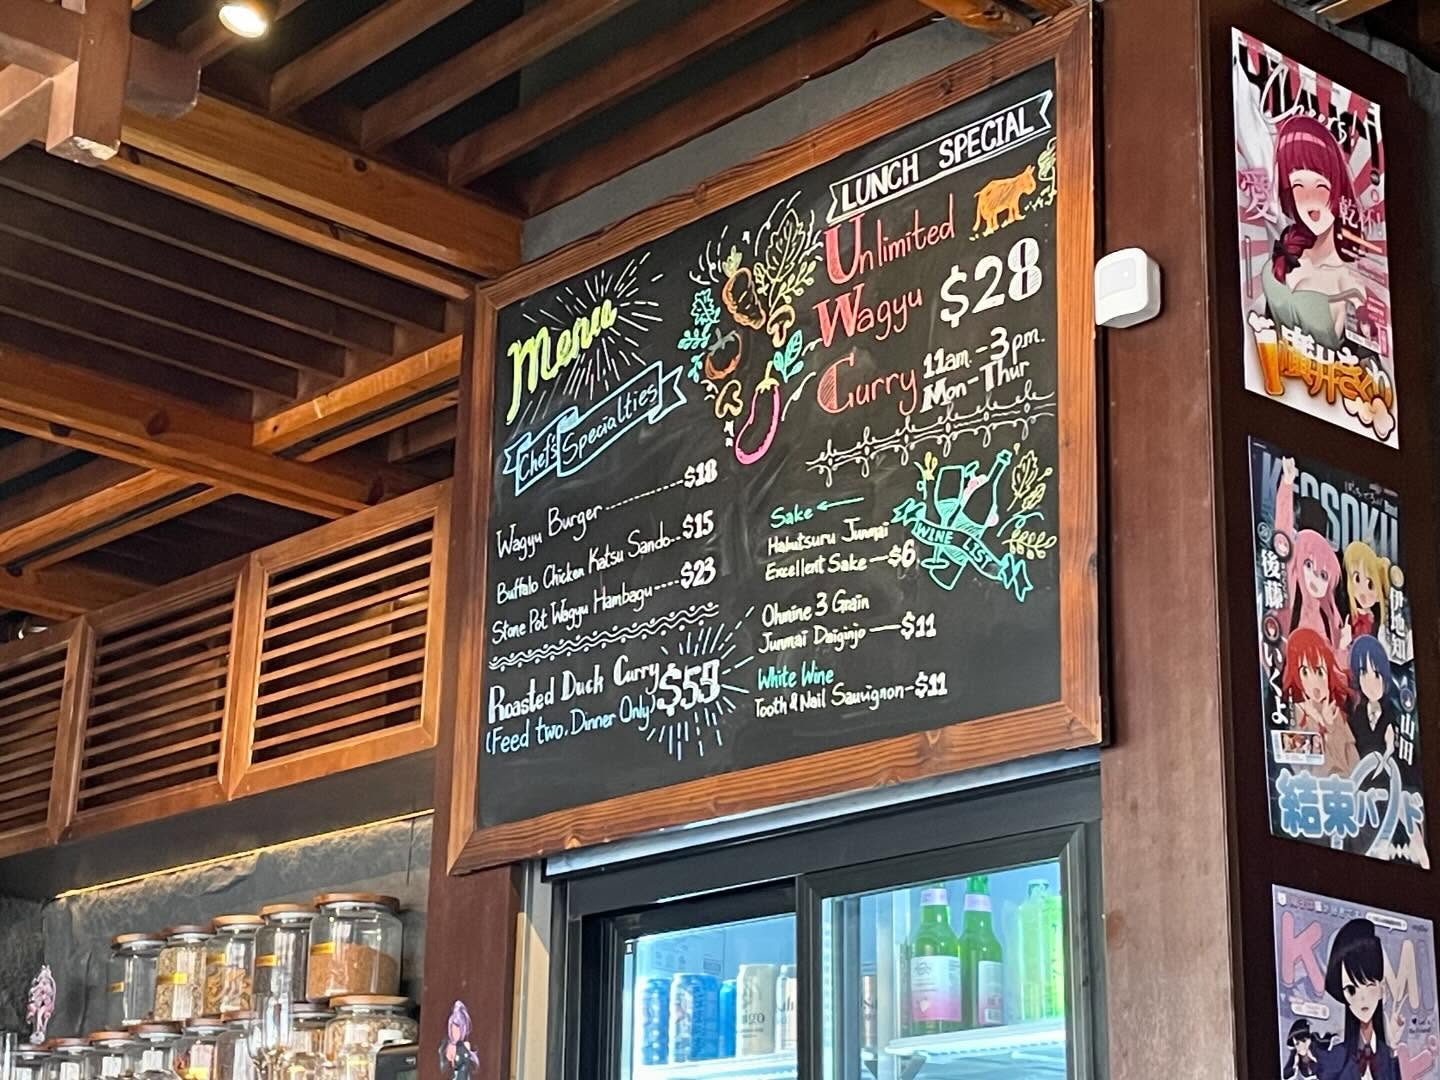 Menu
Chef's Specialties
Wagyu Burger $18
Buffalo Chicken Katsu Sando $15
Stone Pot Wagyu Hambagu $23
Roasted Duck Curry $59
(Feed two. Dinner Only)
LUNCH SPECIAL
Unlimited
Wagyu $28
Curry 11am.-3pm.
Mon-Thur
Sake
WINE LIST
Hakutsuru Junmai
Excellent Sake $6
Ohmine 3 Grain
Junmai Daiginjo $11
White Wine
Tooth & Nail Sauvignon $11
Cheers!
愛
乾杯!
KESSOKU
後藤
伊地知
いくよ
山田
結束バンド
KOMI